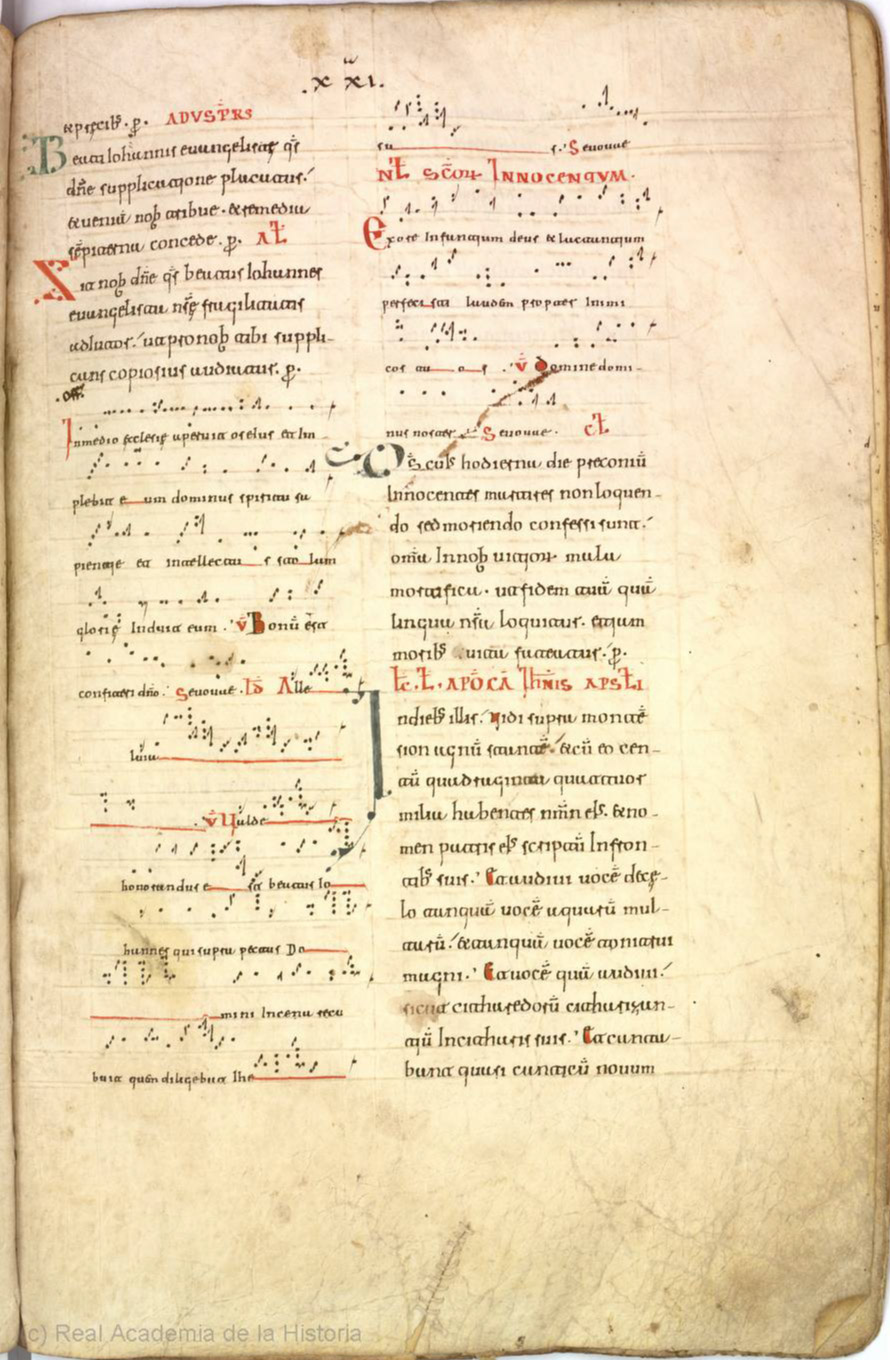 .xxxi.
& precib; . p̱. ADVSTP̄RS
Beati Iohannis euuangelistę q̄s
dn̄e supplicatione placatus.
& ueniā nob atribue . & remediu
sēpiterna concede . p̱. AŁ
Sit nob dn̄e q̄s beatus Iohannes
euuangelista nr̄ę fragilitatis
adiutor. ut pro nob tibi suppli-
cans copiosius audiatur. p̱.
.off.
In medio ecclesię aperuit os eius et im
plebit e um dominus spiritu sa
pientię et intellectu s stolam
glorię Induit eum . v̄ Bonū est
confiteri dn̄o. Seuouae. Alle
luia
v̄ Ualde
honorandus e st beatus Io
hannes qui supra pectus Do
mini In cena recu
buit quem diligebat Ihe
su s. Seuouae
NŁ SC̄OR INNOCENTIVM.
Ex ore Infantium deus & lactantium
perfecisti laudem propter Inimi
cos tu o s . v̄ Domine domi-
nus noster Seuouae. cŁ
D̄s cui; hodierna die preconiū
Innocentes martires non loquen-
do sed moriendo confessi sunt.
omīa In nob uitior mala
mortifica . ut fidem tuā quā
lingua nr̄a loquitur. etiam
morib; uita fateatur. p̱.
Łc. Ł. APOCA IħNIS APSTLI
In dieb; illis. uidi supra montē
sion agnū stantē. & cū eo cen-
tū quadraginta quattuor
milia habentes nm̄n ei;. & no-
men patris ei; scriptū In fron-
tib; suis. Et audiui uocē de cę-
lo tanquā uocē aquarū mul-
tarū. & tanquā uocē tonitrui
magni. Et uocē quā audiui.
sicut citharedorū citharizan-
tiū In citharis suis. Et canta-
bant quasi canticū nouum
(c) Real Academia de la Historia